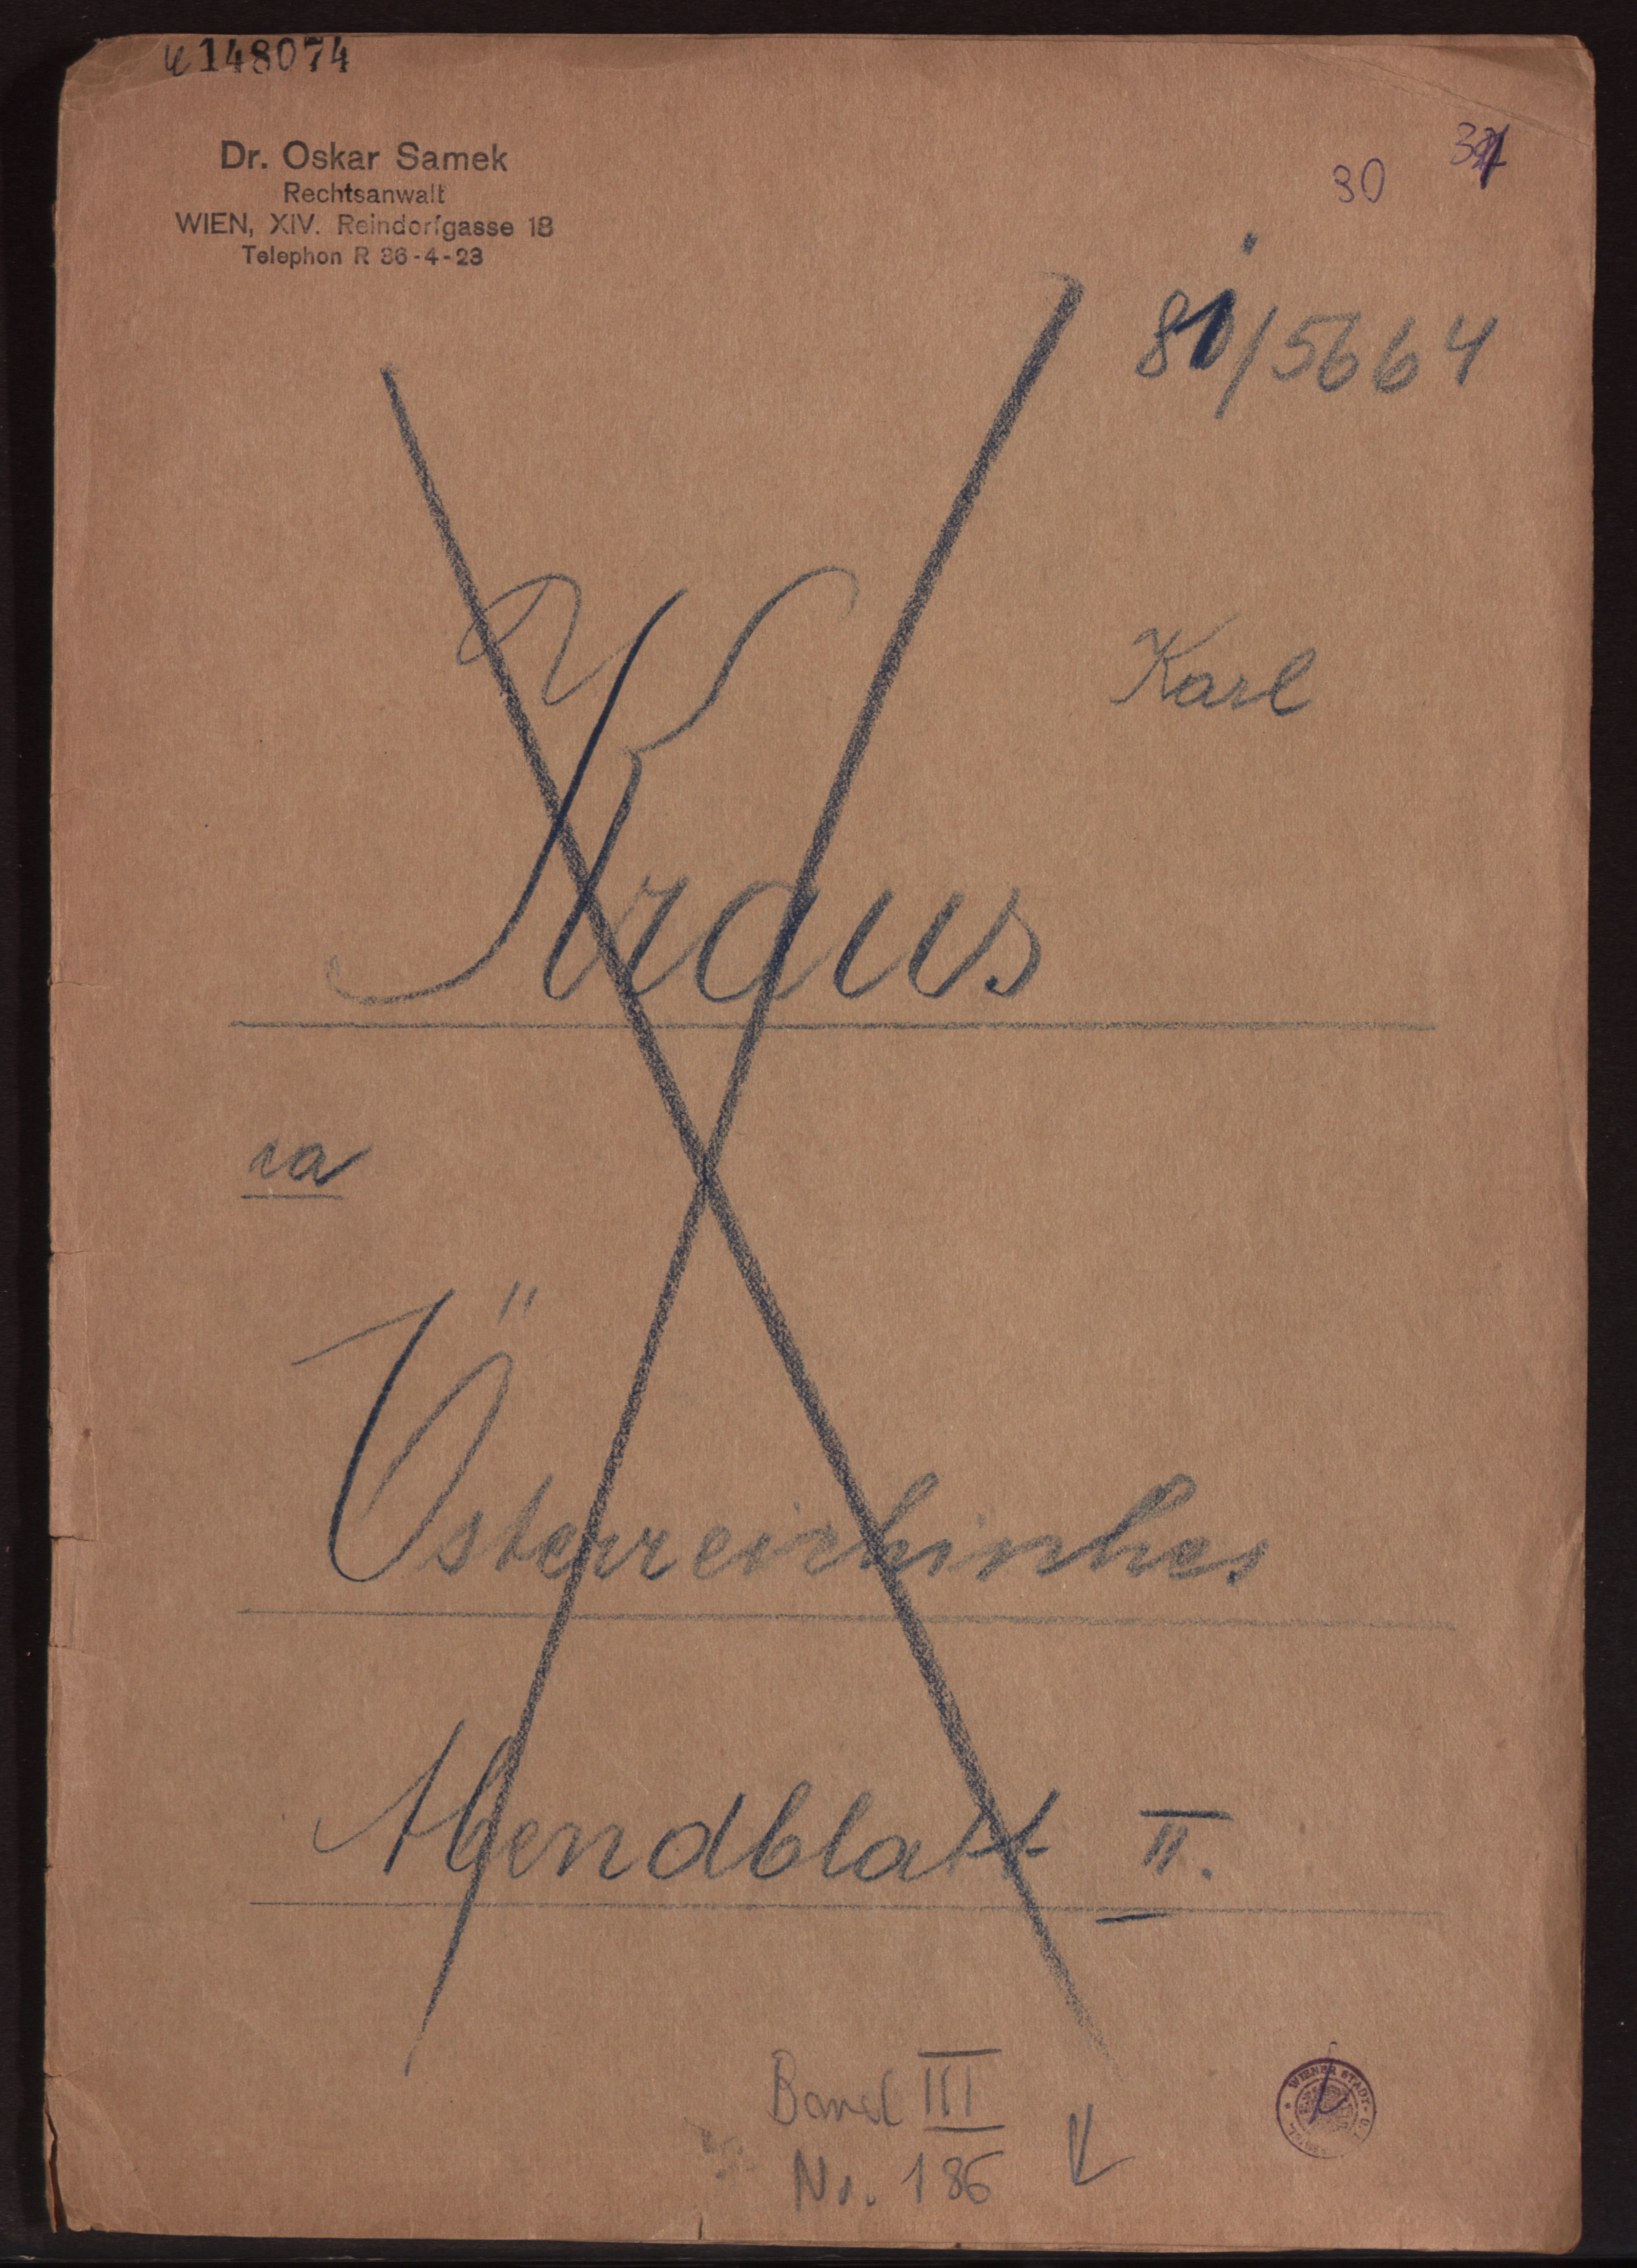 148074
Dr. Oskar Samek
Rechtsanwalt
WIEN, XIV. Reindorfgasse 18
Telephon R 36-4-23
30
81/5664
Karl
Kraus
ca
Österreichisches
Abendblatt II.
Band III
No. 186
WIENER STADT-